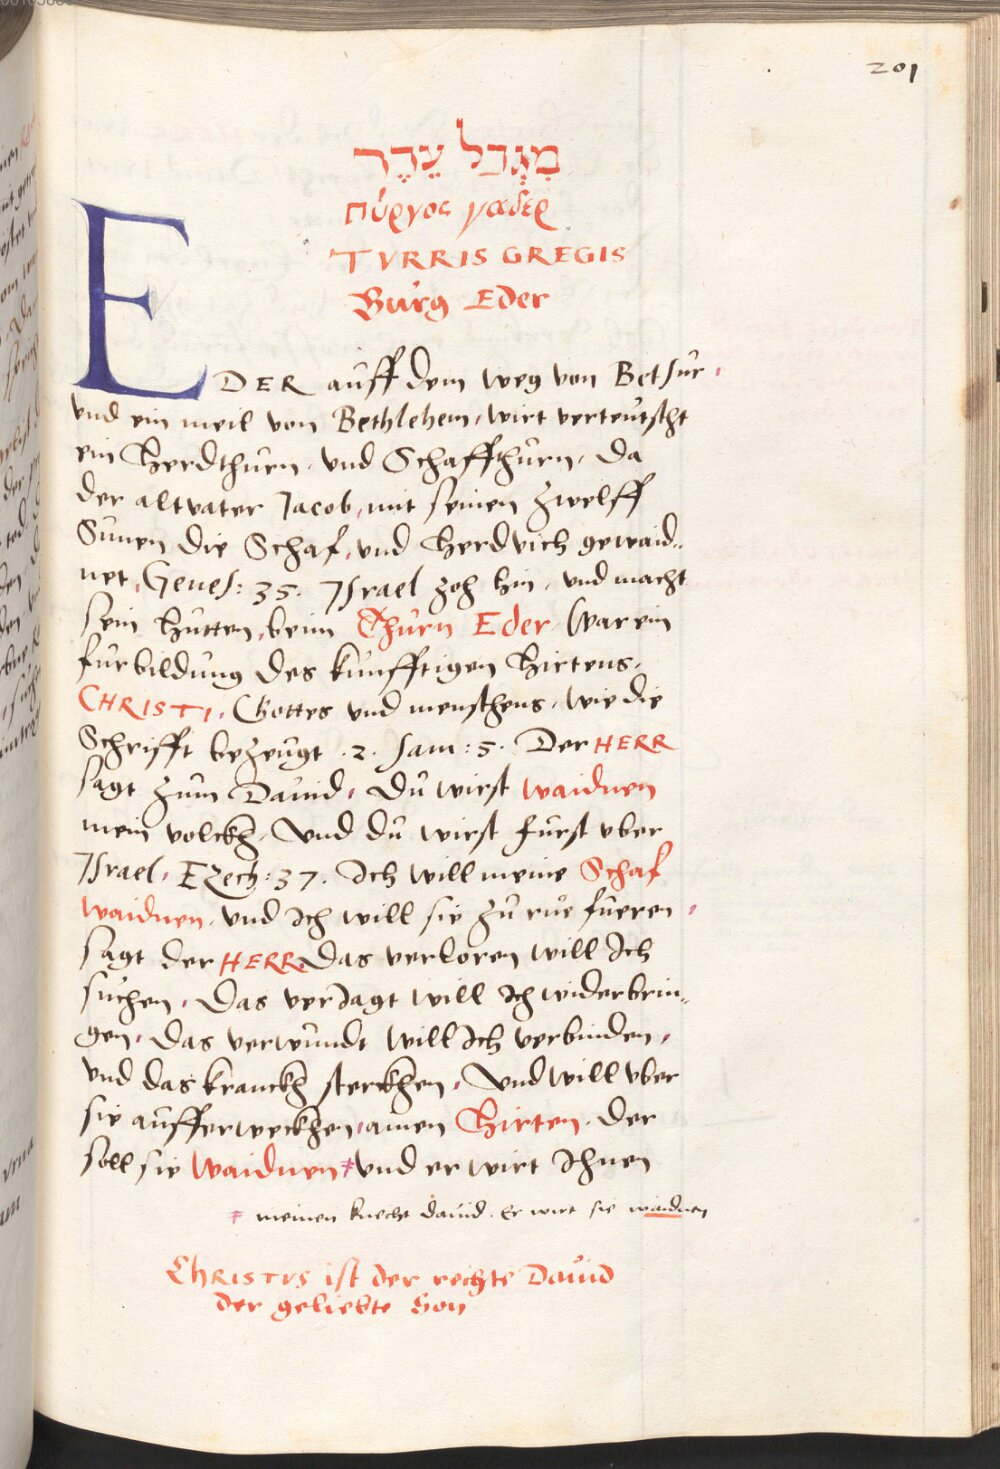 201
מִגְדַּל עֵדֶר
πύργος γαδερ
TVRRIS GREGIS
Burg Eder
EDER auff dem weg von Betsur,
vnd ein meil von Bethlehem, wirt verteutscht
ein Herdthurn, vnd Schaffthurn, Da
der altvater Jacob, mit seinen zwelff
Sunen die Schaf, vnd Herdvich gewaid-
net, Genes: 35. JSrael zoh hin, vnd macht
sein hutten, beim Thurn Eder, War ein
furbildung des kunfftigen Hirtens,
CHRISTI, Gottes vnd menschens, wie die
Schrifft bezeugt .2. Sam: 5. Der HERR
sagt zum Dauid, Du wirst waidnen
mein volckh, Vnd du wirst furst vber
JSrael, EZech: 37. Ich will meine Schaf
waidnen, vnd Ich will sie zu rue fueren,
sagt der HERR, Das verloren will Ich
suchen, Das verJagt will Ich widerbrin-
gen, Das verwundt will Ich verbinden,
vnd das kranckh sterckhen, Vnd will vber
sie aufferweckhen, ainen Hirten, Der
soll sie waidnen, vnd er wirt Ihnen
meinen knecht dauid. Er wirt sie waidnen
CHRISTVS ist der rechte Dauid
der geliebte Son